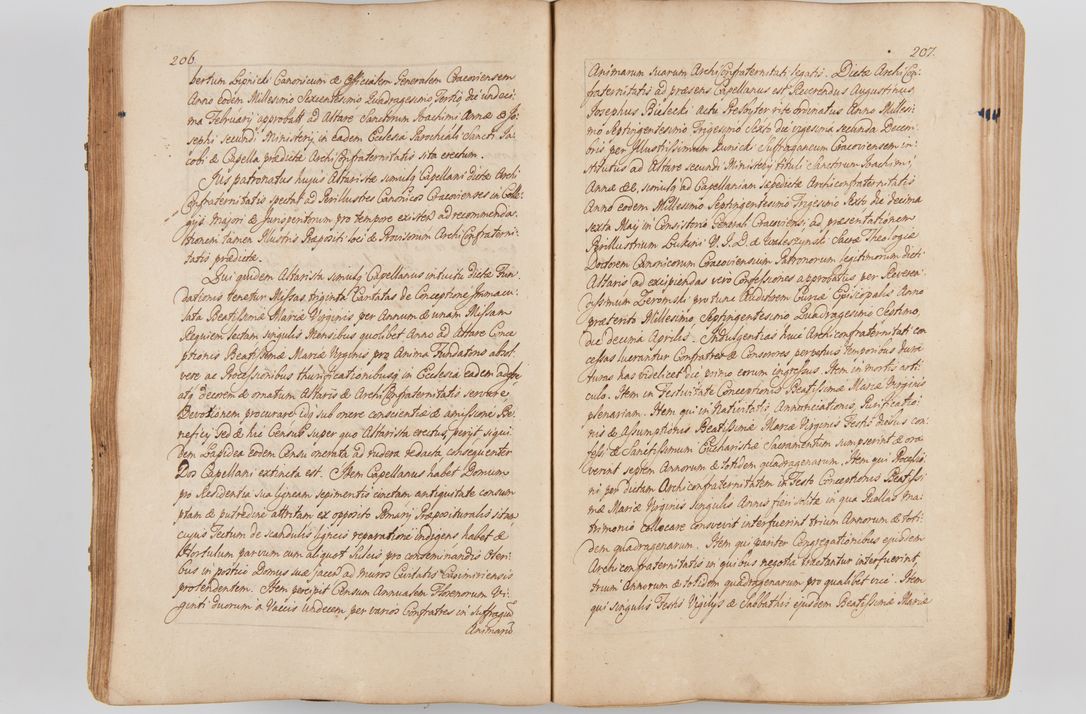 206.
bertum Lipnicki Canonicum & Officialem Generalem Cracoviensem
Anno eodem Millesimo Sexcentesimo Quadragesimo Tertio die undeci
ma Februarij approbatt ad Altare Sanctorum Joachimi Annæ & Jo
sephi secundi Ministerij in eadem Ecclesia Parochiali Sancti Ja
cobi & Capella prædicta Archi Confraternitatis sita erectum.
Jus patronatus hujus Altaristæ simulq Capellani dictæ Archi
Confraternitatis spectat ad Perillustres Canonicos Cracovienses in Colle
gijs Majori & Jurisperitorum pro tempore existen ad recommenda
tionem tamen Illustris Præpositi loci & Provisorum Archi Confraterni
tatis prædictæ.
Qui quidem Altarista simulq Capellanus intuitu dictæ Fun
dationis tenetur Missas triginta Cantatas de Conceptione Immacu
lata Beatissimæ Mariæ Virginis per Annum & unam Missam
Requiem lectam singulis Mensibus quolibet Anno ad Altare Conce
ptionis Beatissimæ Mariæ Virginis pro Anima Fundatoris absol
vere ac Processionibus thurificationibusq in Ecclesia eadem
atq decorem & ornatum Altaris & Archi Confraternitatis servare
Devotionem procurare idq sub onere conscientiæ & amissione Be
neficij sed & hic Census super quo Altarista erectus, perijt siqui
dem Lapidea eodem Censu onerata ad rudera redacta consequenter
Dos Capellani extincta est. Item Capellanus habet Domum
pro Residentia sua ligneam sepimentis cinctam antiquitate consum
ptam & putredine attritam ex opposito Pomarij Præposituralis sitam
cujus Tectum de scandulis ligneis reparatione indigens habet &
Hortulum parvum cum aliquot sulcis pro conseminandis Oleri
bus in postico Domus suæ jacen ad muros Civitatis Casimiriensis
protendentem. Item percipit Censum Annualem Florenorum Vi
ginti duorum a Uncijs undecem per varios Confratres in suffragiu
Animaru
207.
Animarum suarum Archi Confraternitati legatis. Dictæ Archi Con
fraternitatis ad præsens Capellanus est Reverendus Augustinus
Josephus Bielecki actu Presbyter rite ordinatus Anno Millesi
mo Septingentesimo Trigesimo Sexto die vigesima secunda Decem
bris per Illustrissimum Kunicki Suffraganeum Cracoviensem in
stitutus ad Altare secundi Ministerij tituli Sanctorum Joachimi
Annæ &&, simulq ad Capellaniam sæpedictæ Archiconfraternitatis
Anno eodem Millesimo Septingentesimo Trigesimo Sexto die decima
sexta Maij in Consistorio Generali Cracoviensi, ad præsentationem
Perillustrium Lukini V. J. D. & Sacræ Theologiæ
Doctorem Canonicorum Cracoviensium Patronorum legitimorum dicti
Altaris ad excipiendas vero Confessiones approbatus per Reveren
dissimum Zeromski pro tunc Auditorem Curiæ Episcopalis Anno
præterito Millesimo, Septingentesimo Quadragesimo Septimo,
die decima Aprilis. Indulgentias huic Archiconfraternitati con
cessas lucrantur Confratres & Consorores perpetuis temporibus dura
turas has videlicet die primo eorum ingressus. Item in mortis arti
culo. Item in Festivitate Conceptionis Beatissimæ Mariæ Virginis
plenariam. Item qui in Nativitatis, Annunciationis, Purificatio
nis & Assumptionis Beatissimæ Mariæ Virginis Festis Diebus con
fessi & Sanctissimum Eucharistiæ Sacramentum sumpserint & ora
verint septem Annorum & totidem quadragenarum. Item qui Processio
ni per dictam Archiconfraternitatem in Festo Conceptionis Beatissi
mæ Mariæ Virginis singulis Annis fieri solitæ in qua Puellas ma
trimonio collocare consuevit interfuerint trium Annorum & toti
dem quadragenarum. Item qui pariter Congregationibus ejusdem
Archi confraternitatis in quibus negotia tractantur interfuerint
trium Annorum & totidem quadragenarum pro qualibet vice. Item
qui singulis Festis Vigilijs & Sabbathis ejusdem Beatissimæ Mariæ